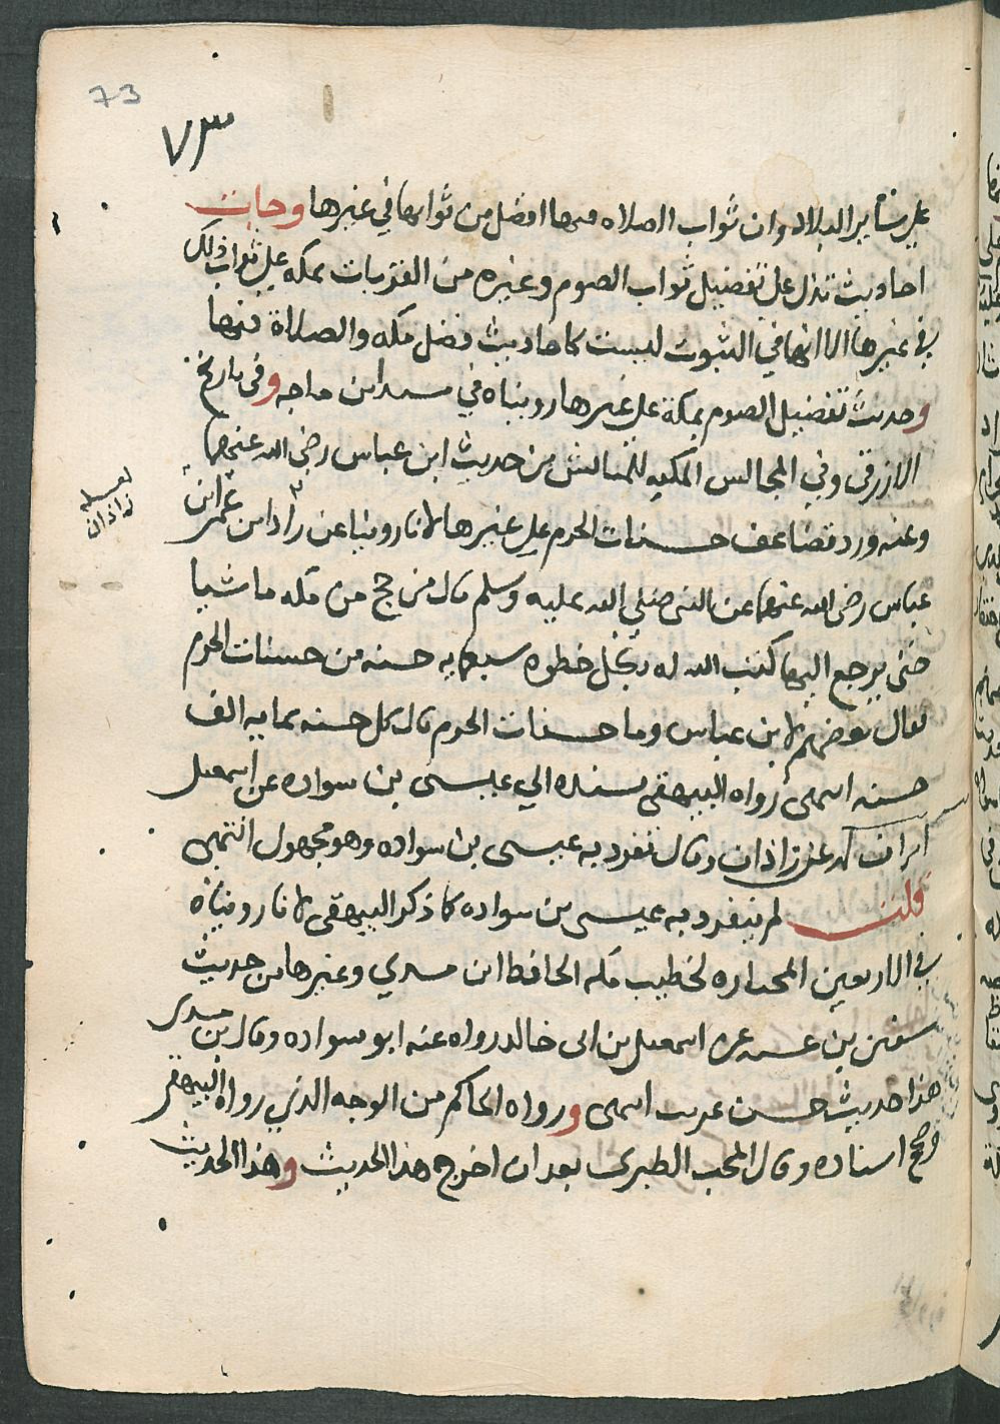 73
٧٣
علي سائر البلاد وان ثواب الصلاه فيها افضل من ثوابها في غيرها وجات
احاديث تدل علي تفضيل ثواب الصوم وغيره من القربات بمكه علي ثواب ذلك
في غيرها الا انها في الثبوت ليست كاحاديث فضل مكه والصلاة فيها
وحديث تفضيل الصوم بمكة علي غيرها رويناه في سنن ابن ماجه وفي تاريخ
الازرقي وفي المجالس المكيه للميانشي من حديث ابن عباس رضي الله عنهما
وعنه ورد تضاعف حسنات الحرم علي غيرها لانا روينا عن زادان عن ابن
لعله
زاذان
عباس رضي الله عنهما عن النبي صلي الله عليه وسلم قال من حج من مكه ماشيا
حتى يرجع اليها كتب الله له بكل خطوه سبعمايه حسنه من حسنات الحرم
فقال بعضهم لابن عباس وما حسنات الحرم قال كل حسنه بمايه الف
حسنه انتهى رواه البيهقي بسنده الي عيسى بن سواده عن اسمعيل
عن زاذان وقال تفرد به عيسى بن سواده وهو مجهول انتهى
قلت لم ينفرد به عيسى بن سواده كما ذكر البيهقي لانا رويناه
في الاربعين المختاره لخطيب مكه الحافظ ابن مسدي وغيرها من حديث
سفين بن عيينه عن اسمعيل بن ابي خالد رواه عنه ابو سواده وقال بن مسدى
هذا حديث حسن غريب انتهى ورواه الحاكم من الوجه الذي رواه البيهقي
وصحح اسناده وقال المحب الطبرى بعد ان اخرج هذا الحديث وهذا الحديث